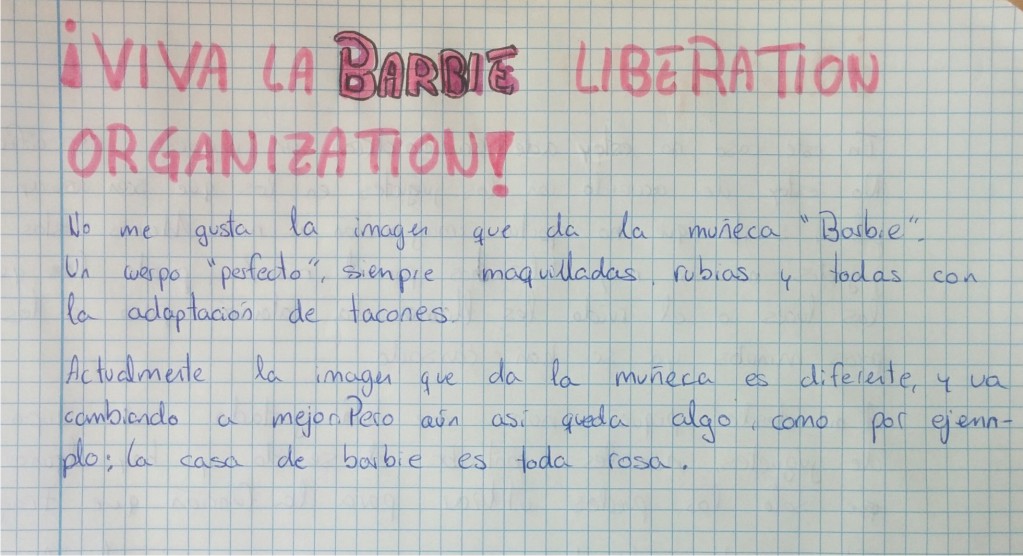 ¡VIVA LA BARBIE LIBERATION
ORGANIZATION!
No me gusta la imagen que da la muñeca "Barbie".
Un cuerpo "perfecto", sienpre maquilladas, rubias y todas con
la adaptación de tacones.
Actualmente la imagen que da la muñeca es diferente, y va
cambiando a mejor. Pero aún así queda algo, como por ejenm-
plo; la casa de barbie es toda rosa.